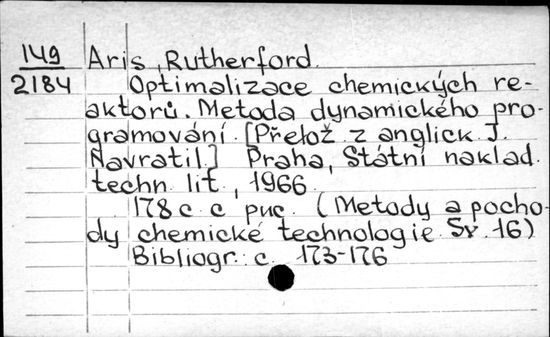 149 Aris, Rutherford.
2184 Optimalizace chemických re-
aktorů. Metoda dynamického pro-
gramování. [Přelož. z anglick. J.
Navratil.] Praha, Státní naklad.
techn. lit., 1966.
178 с. с рис. (Metody a pocho-
dy chemické technologie. Sv. 16)
Bibliogr.: с. 173-176